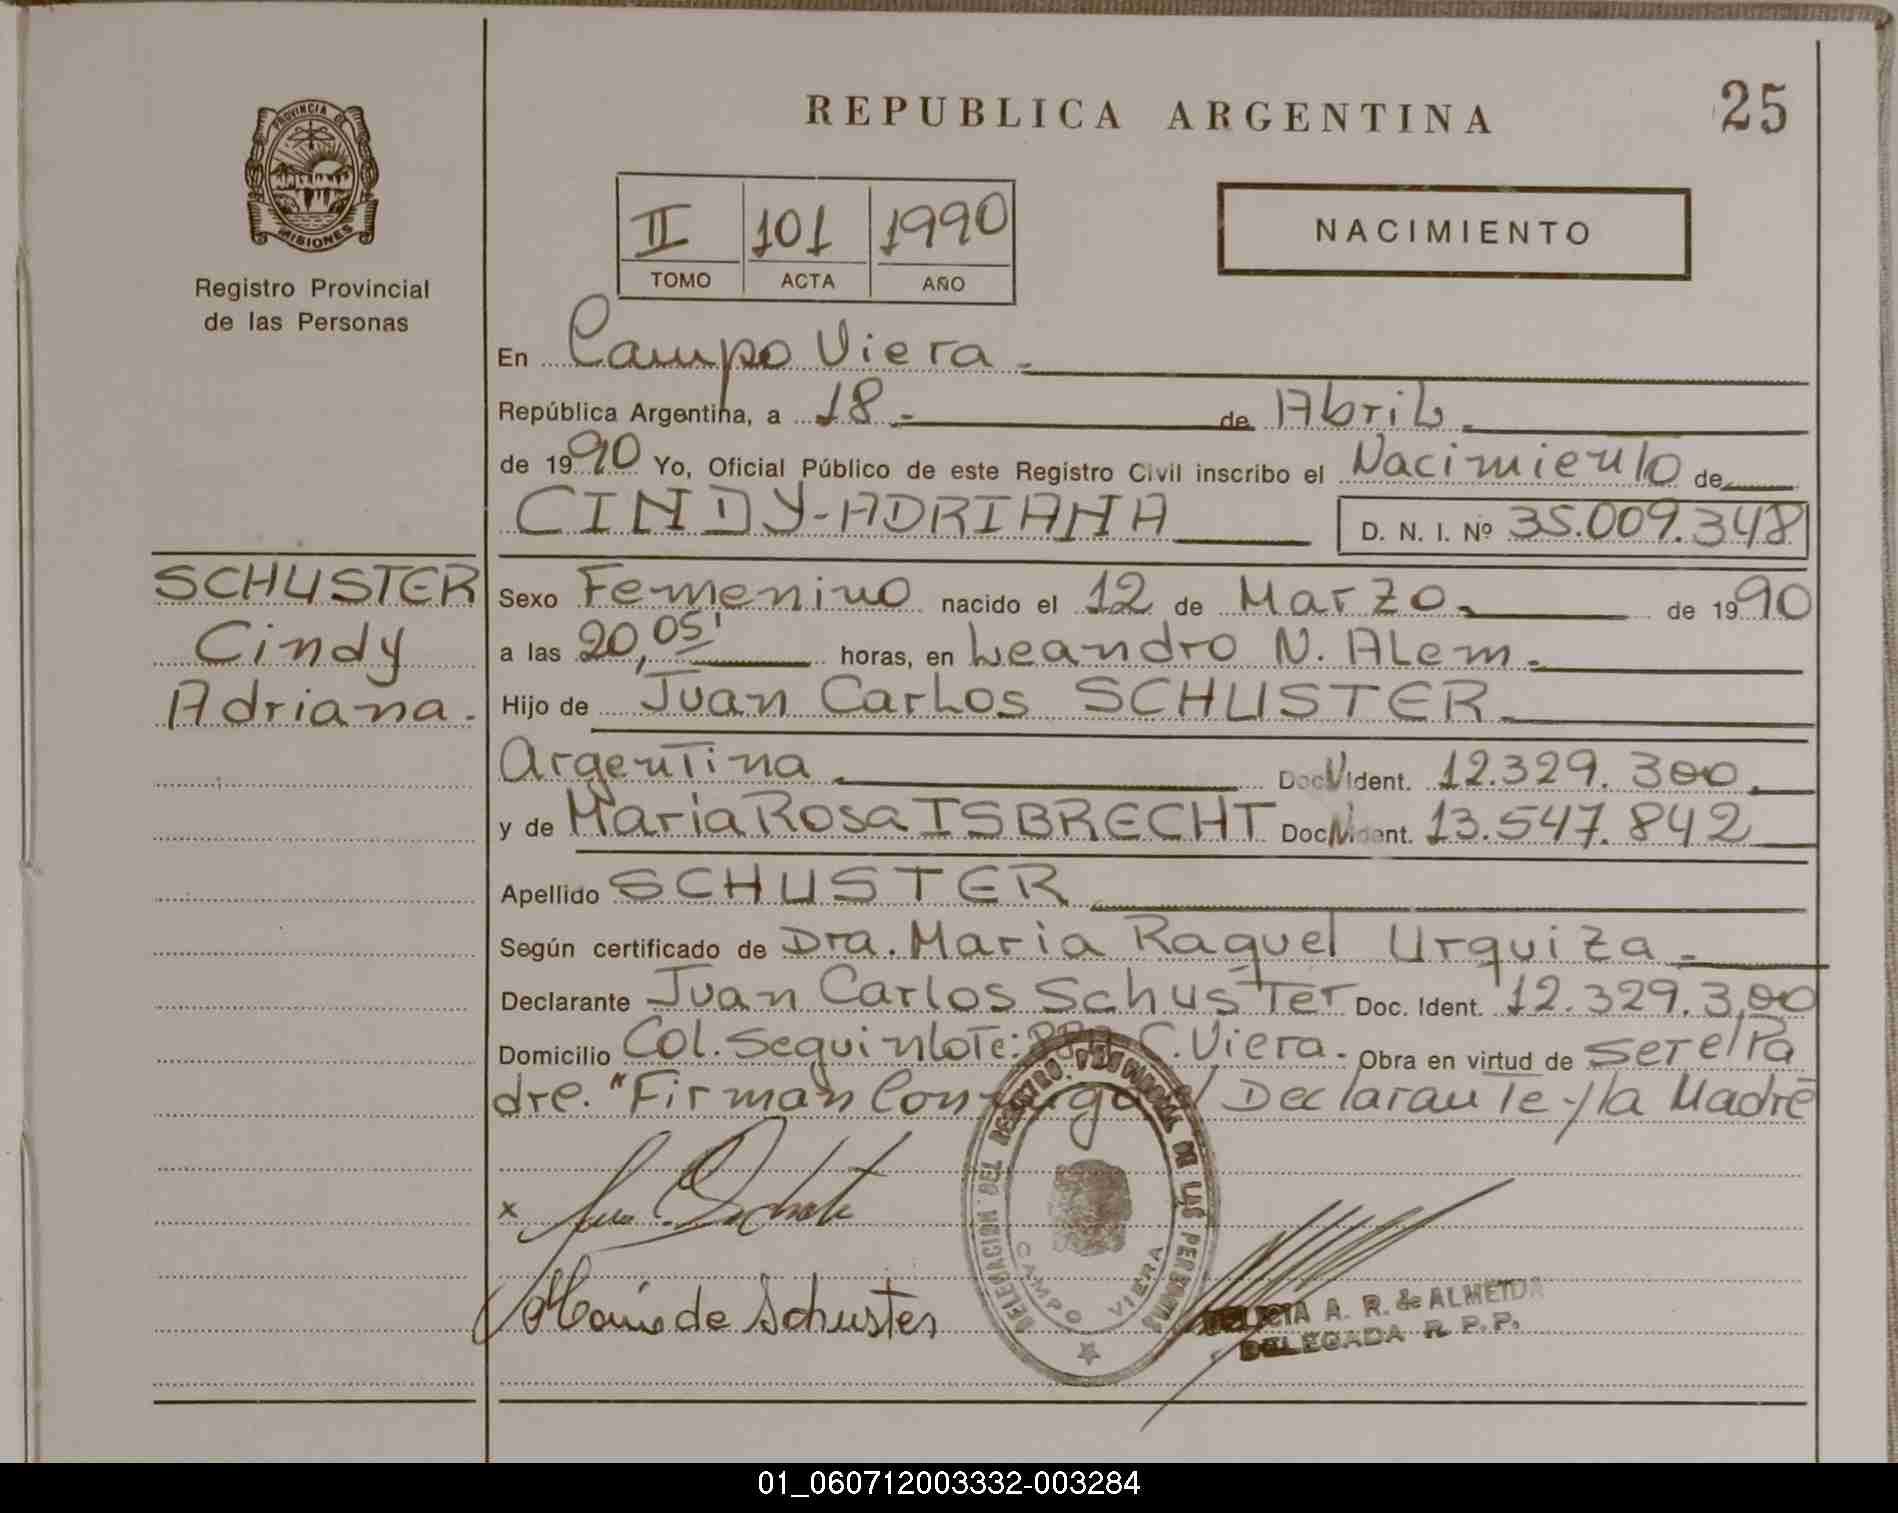 REPUBLICA ARGENTINA
25
PROVINCIA DE
MISIONES
Registro Provincial
de las Personas
II 101 1990
TOMO ACTA AÑO
NACIMIENTO
En Campo Viera
República Argentina, a 18 de Abril
de 1990 Yo, Oficial Público de este Registro Civil inscribo el Nacimiento de
CINDY-ADRIANA D. N. I. Nº 35.009.348
SCHUSTER
Cindy
Adriana
Sexo Femenino nacido el 12 de Marzo de 1990
a las 20,05' horas, en Leandro N. Alem
Hijo de Juan Carlos SCHUSTER
Argentina Doc. Ident. 12.329.300
y de Maria Rosa ISBRECHT Doc. Ident. 13.547.842
Apellido SCHUSTER
Según certificado de Dra. Maria Raquel Urquiza
Declarante Juan Carlos Schuster Doc. Ident. 12.329.300
Domicilio Col. Seguin Lote: C. Viera. Obra en virtud de ser el Pa
dre. "Firman Conmigo el Declarante y la Madre
x
Maria de Schuster
DELEGACION DEL REGISTRO PROVINCIAL DE LAS PERSONAS
CAMPO VIERA
A. R. de ALMEIDA
DELEGADA R. P. P.
01_060712003332-003284